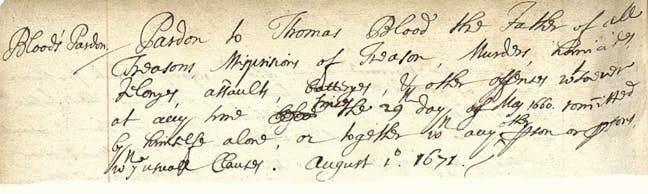 Blood's Pardon
Pardon to Thomas Blood the Father of all
Treasons Misprisions of Treason, Murders, homicides,
felonyes, assaults, batteryes, & other offenses whatever
at any time since the 29th day of May 1660. committed
by himselfe alone, or together wth any other pson or psons,
wth ye usuall Clauses. August 1o 1671.